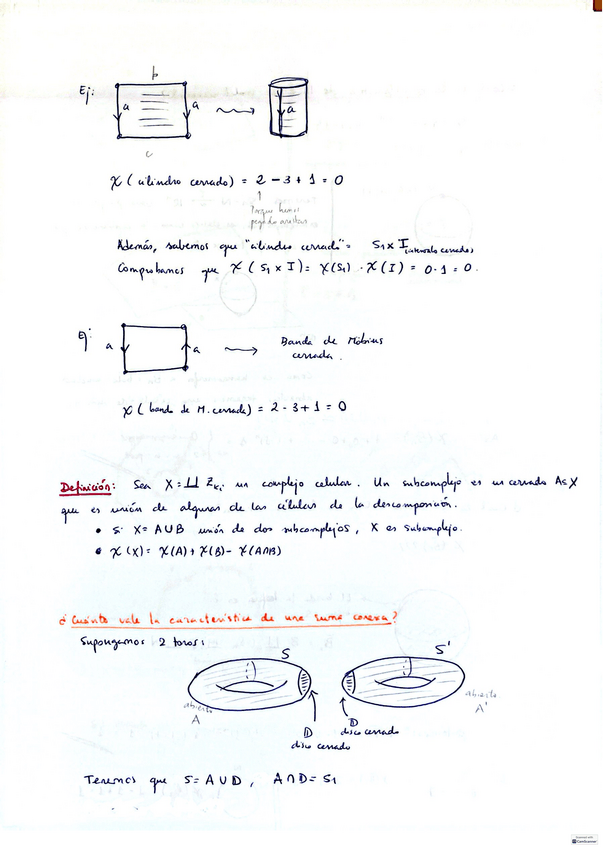 b
Ej:
a
a
a
c
χ ( cilindro cerrado) = 2 - 3 + 1 = 0
↑
porque hemos
pegado aristas
Además, sabemos que "cilindro cerrado" = S1 x I (intervalo cerrado)
Comprobamos que χ ( S1 x I ) = χ(S1) · χ(I) = 0·1 = 0.
Ej:
a
a
Banda de Möbius
cerrada.
χ ( banda de M. cerrada) = 2 - 3 + 1 = 0
Definición: Sea X = ⊔ Zki un complejo celular. Un subcomplejo es un cerrado A ⊆ X
que es unión de algunas de las células de la descomposición.
• Si X = A ∪ B unión de dos subcomplejos, X es subcomplejo.
• χ(X) = χ(A) + χ(B) - χ(A∩B)
¿ Cuánto vale la característica de una suma conexa?
Supongamos 2 toros:
S
S'
abierto
A
D
disco cerrado
D
disco cerrado
abierto
A'
Tenemos que S = A ∪ D, A ∩ D = S1
CamScanner